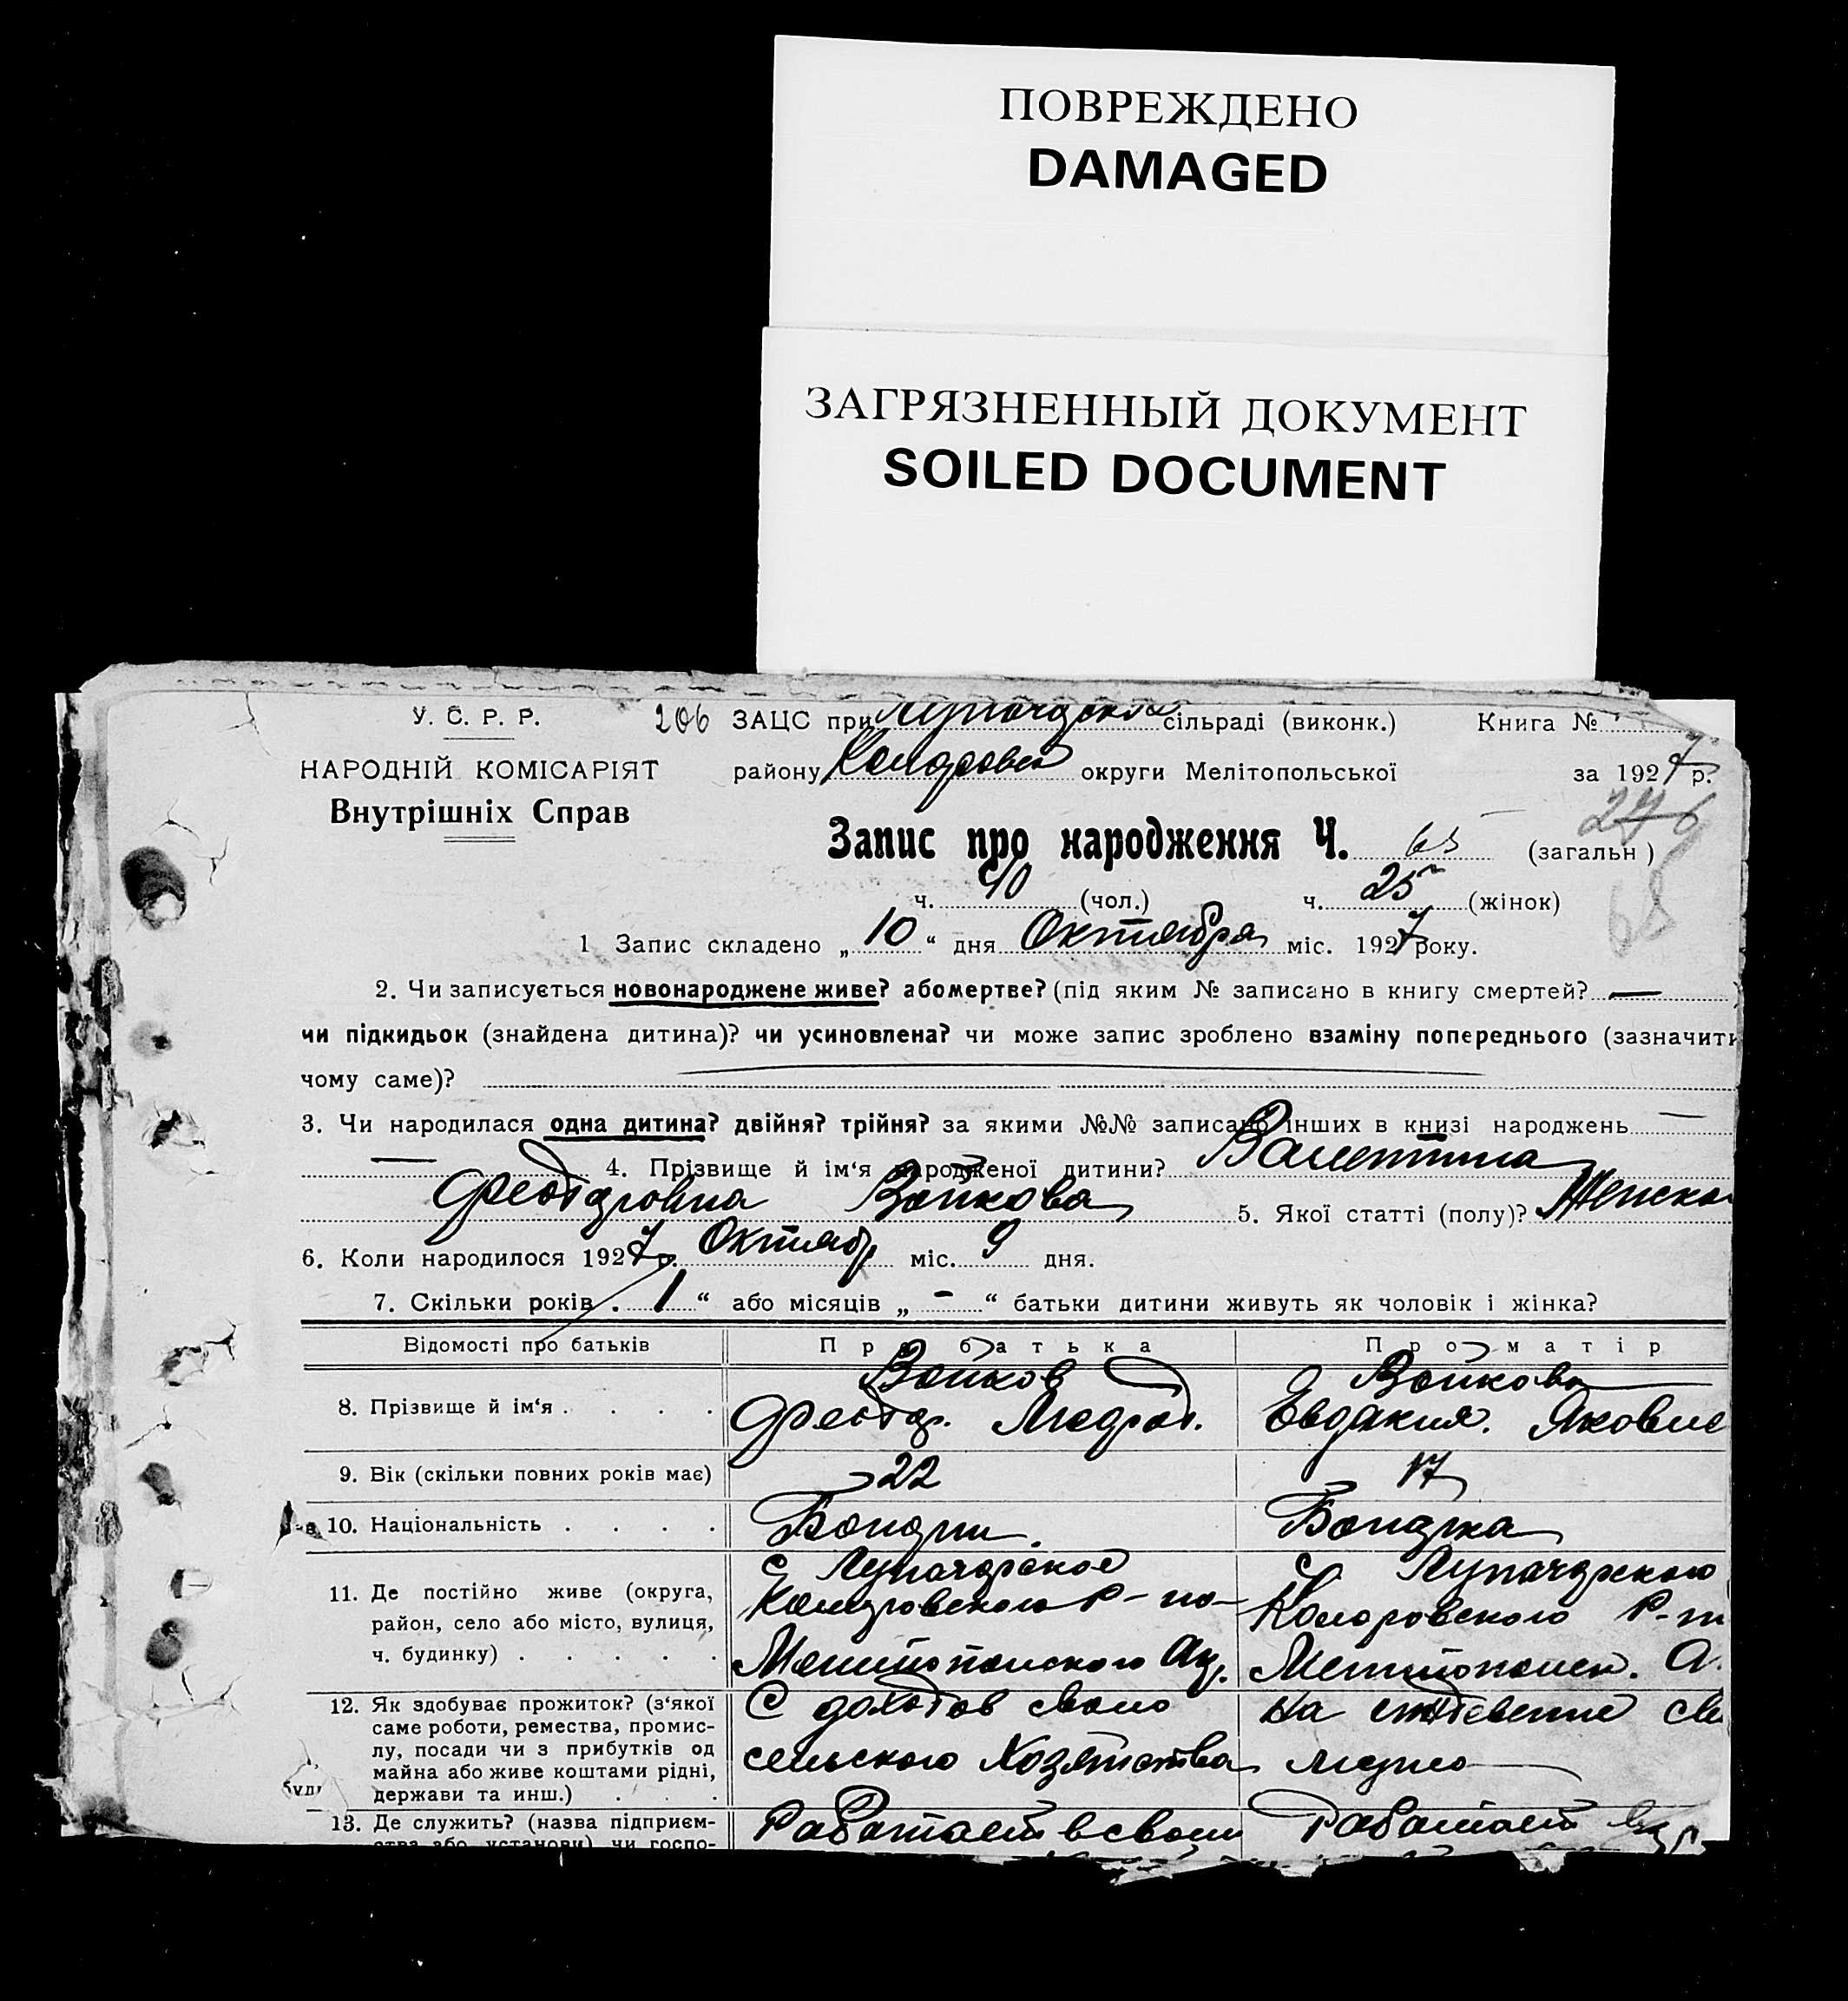 ПОВРЕЖДЕНО
DAMAGED
ЗАГРЯЗНЕННЫЙ ДОКУМЕНТ
SOILED DOCUMENT
У. С. Р. Р. 206 ЗАЦС при сільраді (виконк.) Книга №
НАРОДНІЙ КОМІСАРІЯТ району округи Мелітопольської за 1927 р.
Внутрішніх Справ
276
Запис про народження Ч. 65 (загальн)
ч. 40 (чол.) ч. 25 (жінок)
65
1 Запис складено „10“ дня Октября міс. 1927 року.
2. Чи записується новонароджене живе? або мертве? (під яким № записано в книгу смертей? —
чи підкидьок (знайдена дитина)? чи усиновлена? чи може запис зроблено взаміну попереднього (зазначити
чому саме)?
3. Чи народилася одна дитина? двійня? трійня? за якими №№ записано інших в книзі народжень —
— 4. Прізвище й ім'я народженої дитини? Валентина
Феодоровна Войкова 5. Якої статті (полу)? Женско
6. Коли народилося 1927 р. Октябр міс. 9 дня.
7. Скільки років „1“ або місяців „-“ батьки дитини живуть як чоловік і жінка?
Відомості про батьків Про батька Про матір
8. Прізвище й ім'я . . . . Войков Войкова
Феодор. Евдакия. Яковле
9. Вік (скільки повних років має) 22 17
10. Національність . . . . Болгарин Болгарка
11. Де постійно живе (округа, с
район, село або місто, вулиця, Р-на
ч. будинку) . . . . . Мелитопольского Мелитопольск.
12. Як здобуває прожиток? (з'якої С доходов своего На иждевение
саме роботи, ремества, промис-
лу, посади чи з прибутків од сельского Хозяйства мужа
майна або живе коштами рідні,
держави та инш.) . . .
13. Де служить? (назва підприєм- Работает в своем Работает
ства або установи) чи госпо-